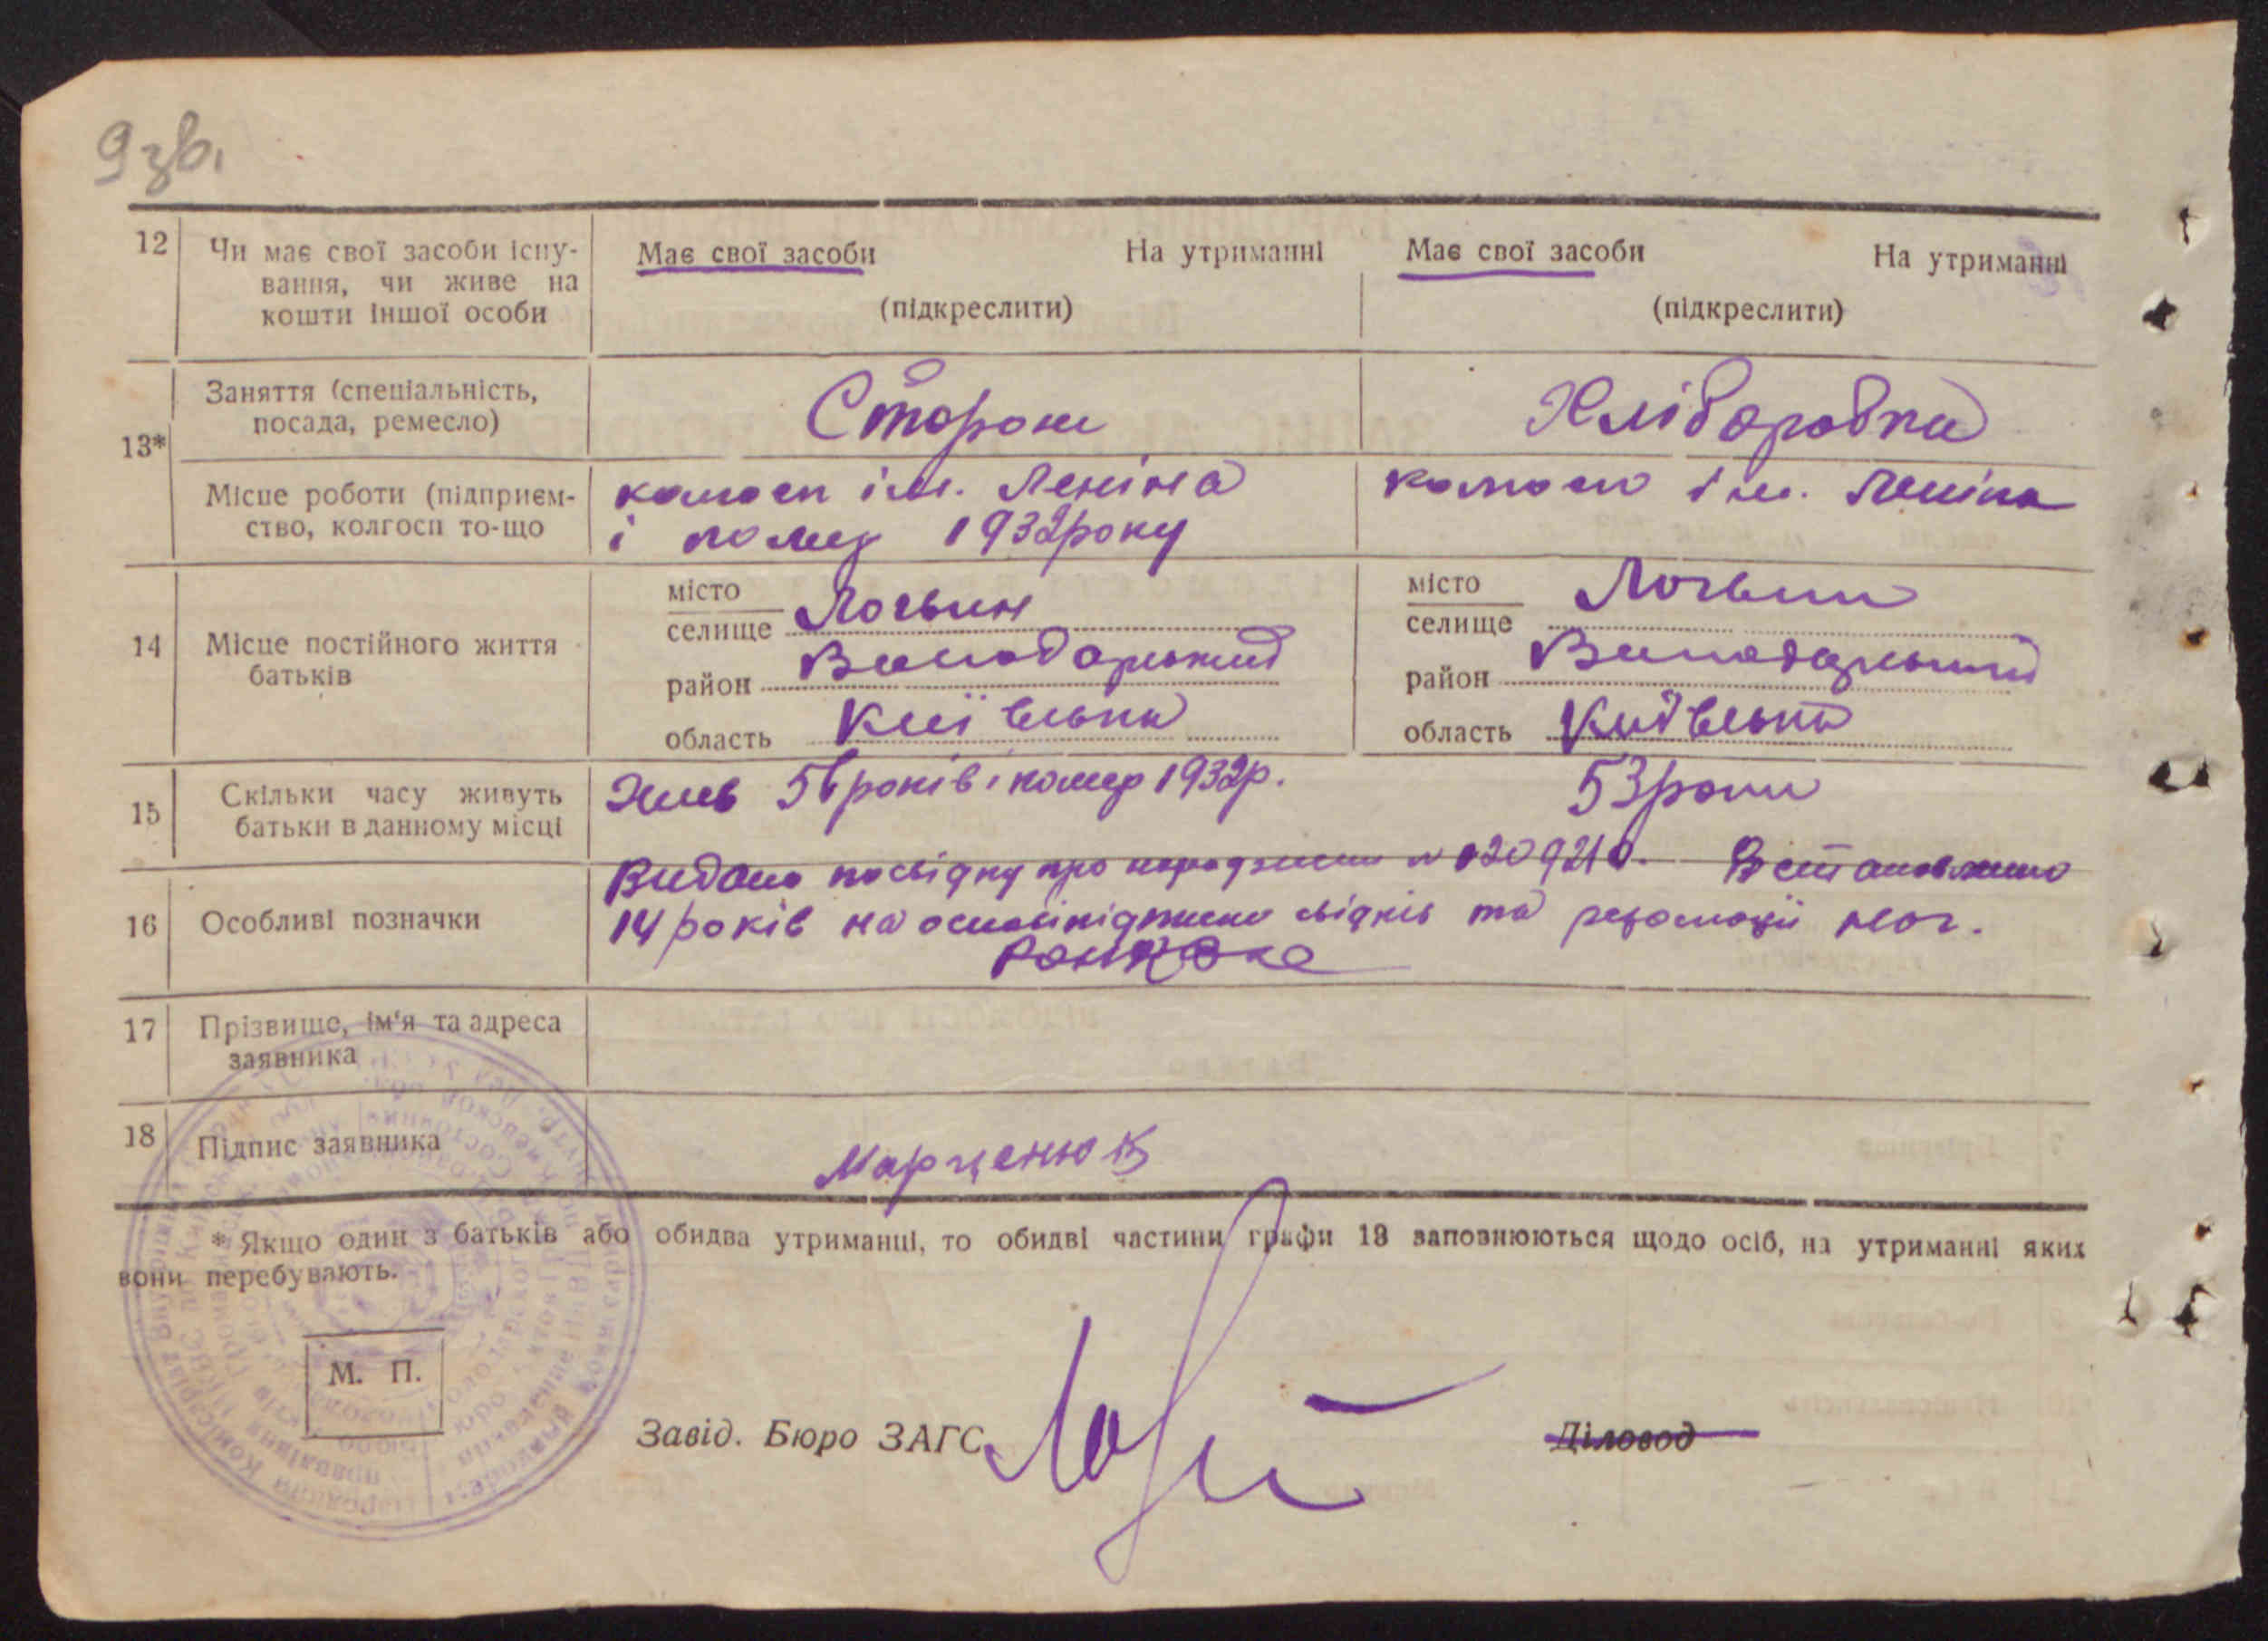 9 зв.
12 Чи має свої засоби існу-
вання, чи живе на
кошти іншої особи
Має свої засоби На утриманні
(підкреслити)
Має свої засоби На утриманні
(підкреслити)
13*
Заняття (спеціальність,
посада, ремесло)
Сторож
Хліборобка
Місце роботи (підприєм-
ство, колгосп то-що
колгосп ім. Леніна
і помер 1932 року
колгосп ім. Леніна
14 Місце постійного життя
батьків
місто
селище Логвин
район Володарський
область Київська
місто Логвин
селище
район Володарський
область Київська
15 Скільки часу живуть
батьки в данному місці
Жив 56 років і помер 1932 р.
53 роки
16 Особливі позначки
Видано посвідку про народження № 209210. Встановлено
14 років на основі свідків та резолюції
17 Прізвище, ім'я та адреса
заявника
18 Підпис заявника
Марценюк
* Якщо один з батьків або обидва утриманці, то обидві частини графи 13 заповнюються щодо осіб, на утриманні яких
вони перебувають.
М. П.
Завід. Бюро ЗАГС
Діловод